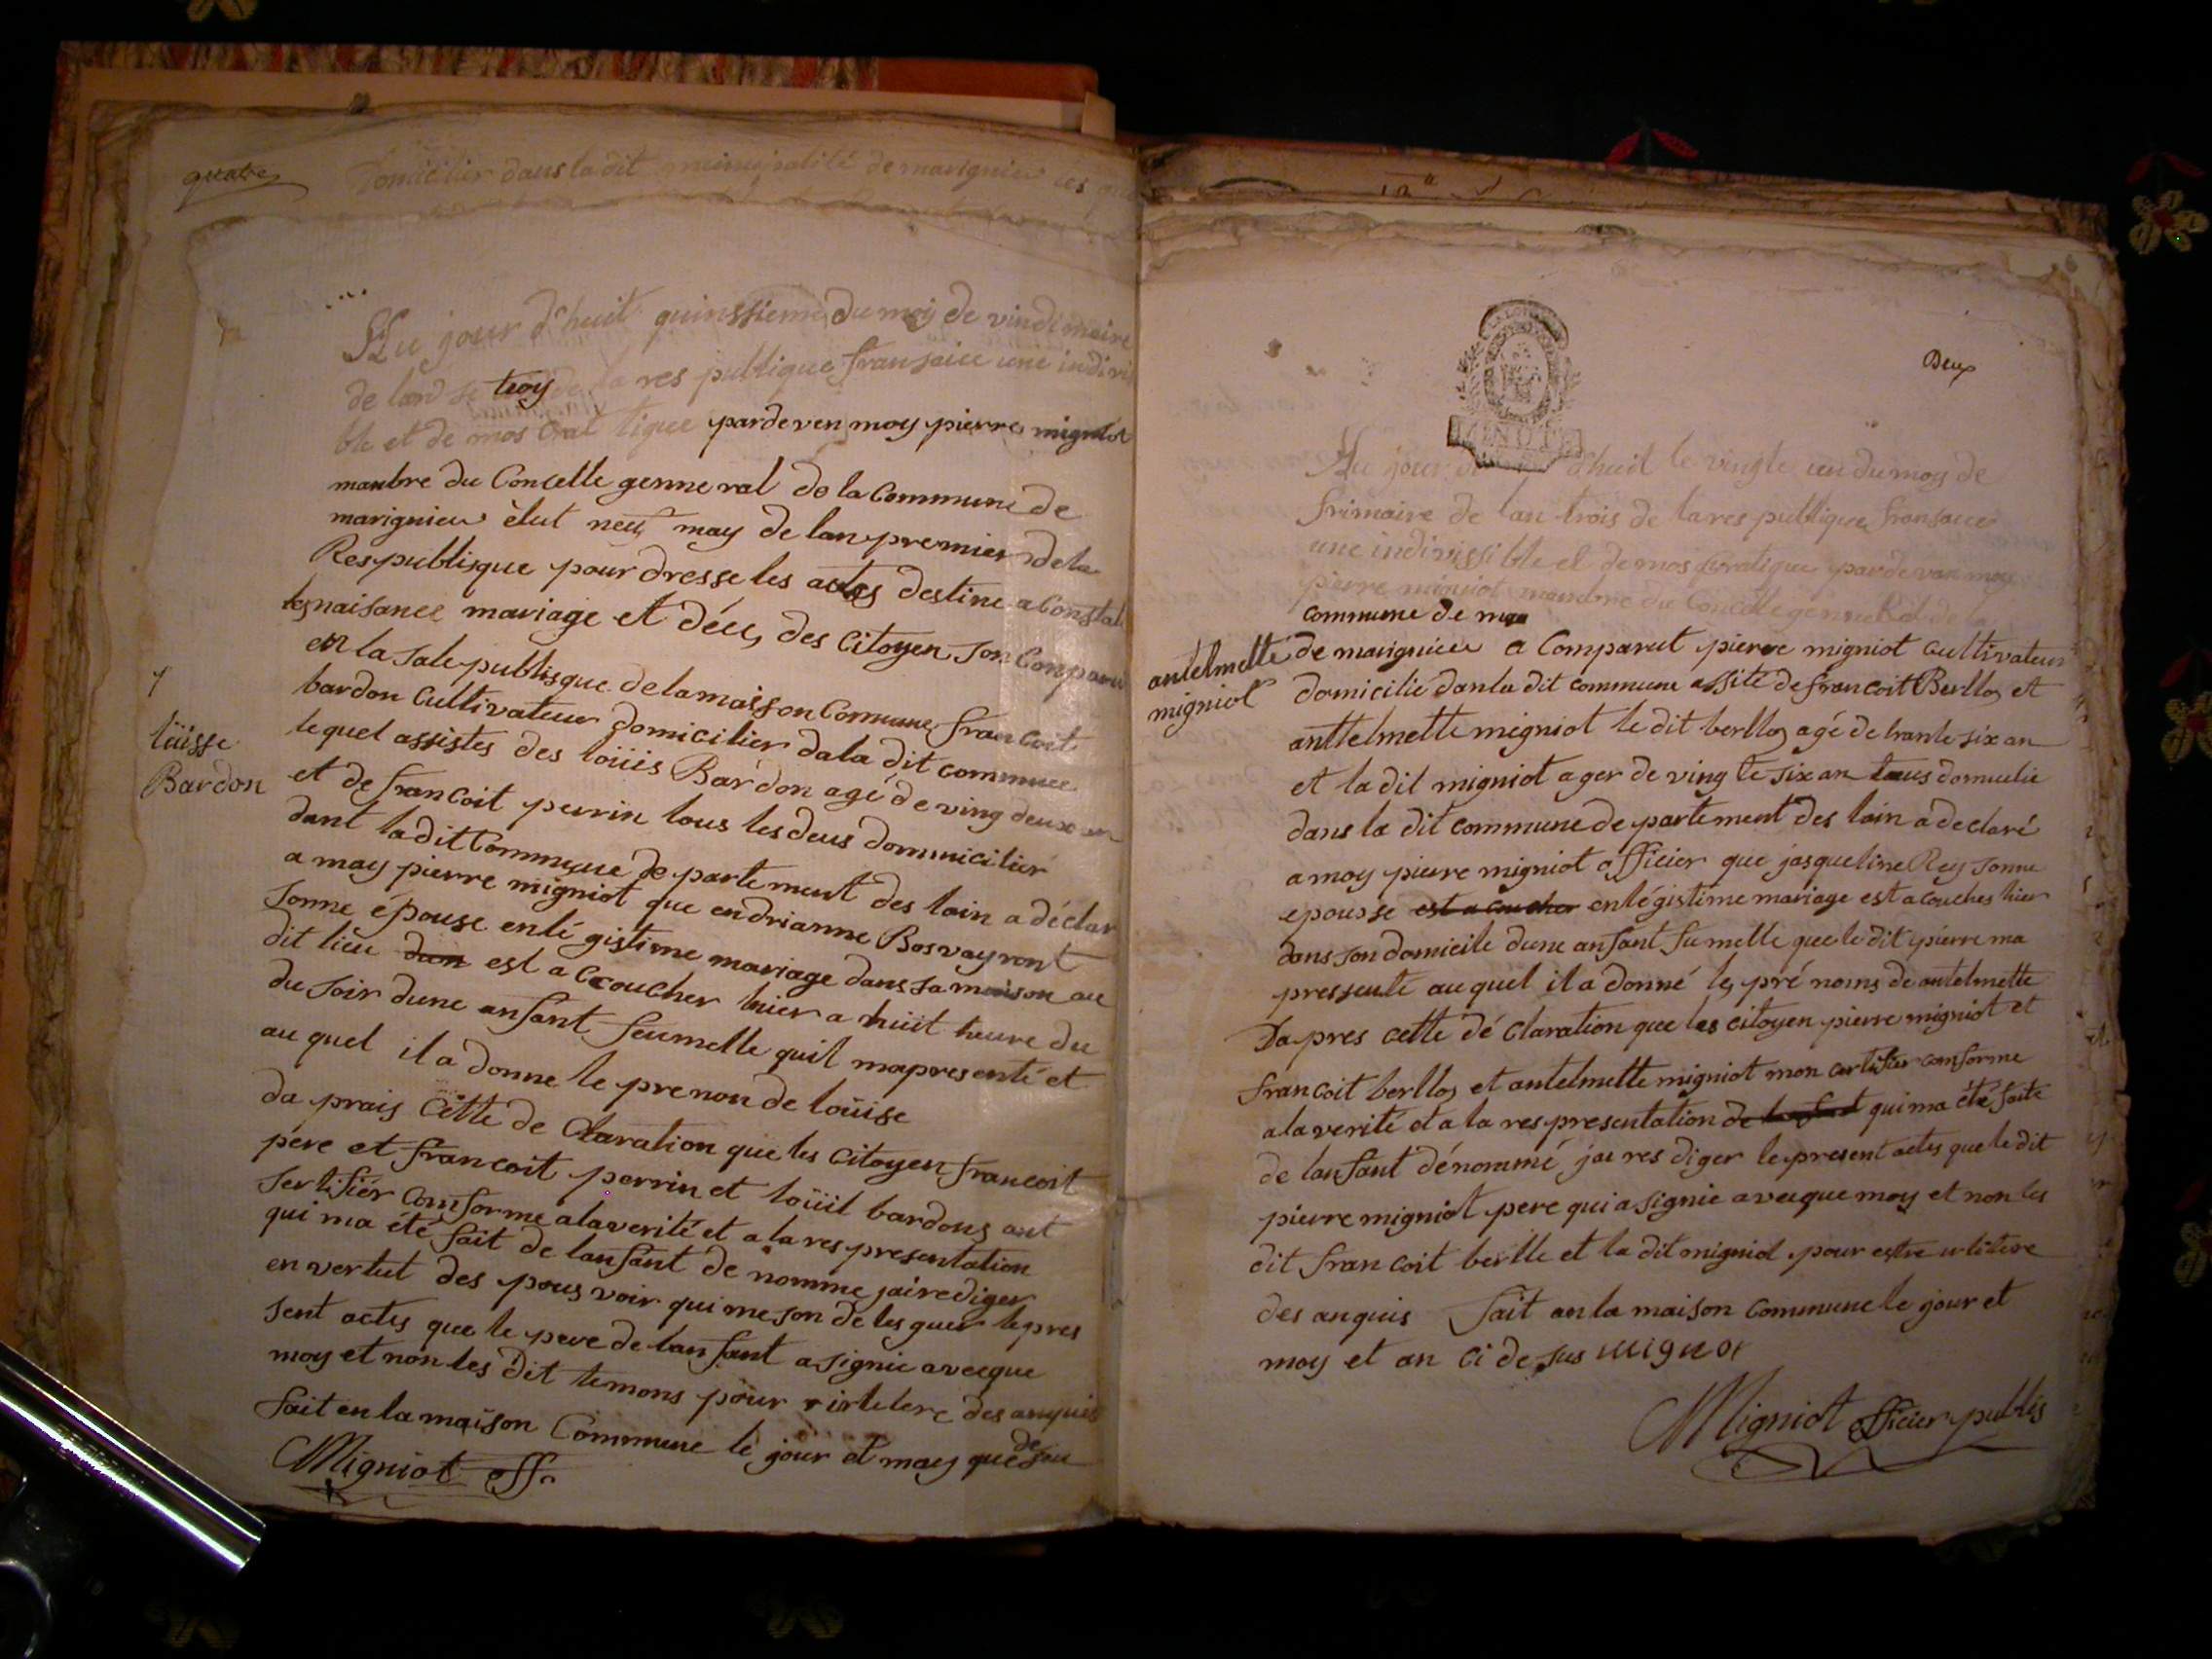 quatre
Domicilier dans la dit municipalité de marignieu les
Au jour d'huit quinssieme du moy de vindimaire
de lan troy de la res publique fransaice une indivi
ble et de mos crat tique pardeven moy pierre migniot
manbre du Concelle genneral de la Commune de
marignieu élut neuf may de lan premier de la
Respublisque pour dresse les actes destine a Constat
les naisance mariage et décé des Citoyen son Conparu
en la sale publisque de la maisson Commune francoit
bardon Cultivateur domicilier da la dit commune
le quel assistes des loüis Bardon agé de ving deux an
et de francoit perrin tous les deus domnicilier
dant la dit Commune de partement des lain a déclar
a moy pierre migniot que endrianne Bosvayront
sonne épouse en lé gistime mariage dans sa maison au
dit lieu dun est a Ccoucher hier a hüit heure du
du soir dune anfant feumelle quil mapresenté et
au quel il a donne le prenon de loüise
da prais Cette de Claration que les Citoyen francoit
pere et francoit perrin et loüil bardons ant
sertifiér Conforme a la verité et a la res presentation
qui ma été fait de lanfant de nomme jai rediger
en vertut des pous voir qui me son de les guer le pres
sent actes que le pere de lanfant a signie avecque
moy et non les dit temons pour irlitere des anquis
fait en la maison Commune le jour et moy que desu
Migniot off.
loüisse
Bardon
Deux
MINUTE
Au jour d'huit le vingte un du moy de
frimaire de lan trois de la res publique fransaice
une indivissible et de mos cratique pardevan moy
pierre migniot manbre du Concelle genneRal de la
commune de ma
de marignieu a Comparut pierre migniot Cultivateur
domicilié dan la dit commune assité de francoit Berllos et
anttelmette migniot le dit berllos agé de trante six an
et la dit migniot ager de ving te six an tous domicilie
dans la dit commune de partement des lain a declaré
a moy pierre migniot officier que jasqueline Rey sonne
epousse est a coucher en légistime mariage est a couches hier
dans son domicile dune anfant fumelle que le dit pierre ma
pressente au quel il a donné les pré noms de antelmette
Da pres cette dé claration que les citoyen pierre migniot et
francoit berllos et antelmette migniot mon certifier conforme
a la verité et a la res presentation de lanfant qui ma été faite
de lanfant dénommé jai res diger le present actes que le dit
pierre migniot pere qui a signie avecque moy et non les
dit francoit berlle et la dit migniot pour estre irlitere
des anquis fait an la maison Commune le jour et
moy et an ci de sus mignot
Migniot officier publis
antelmette
migniot